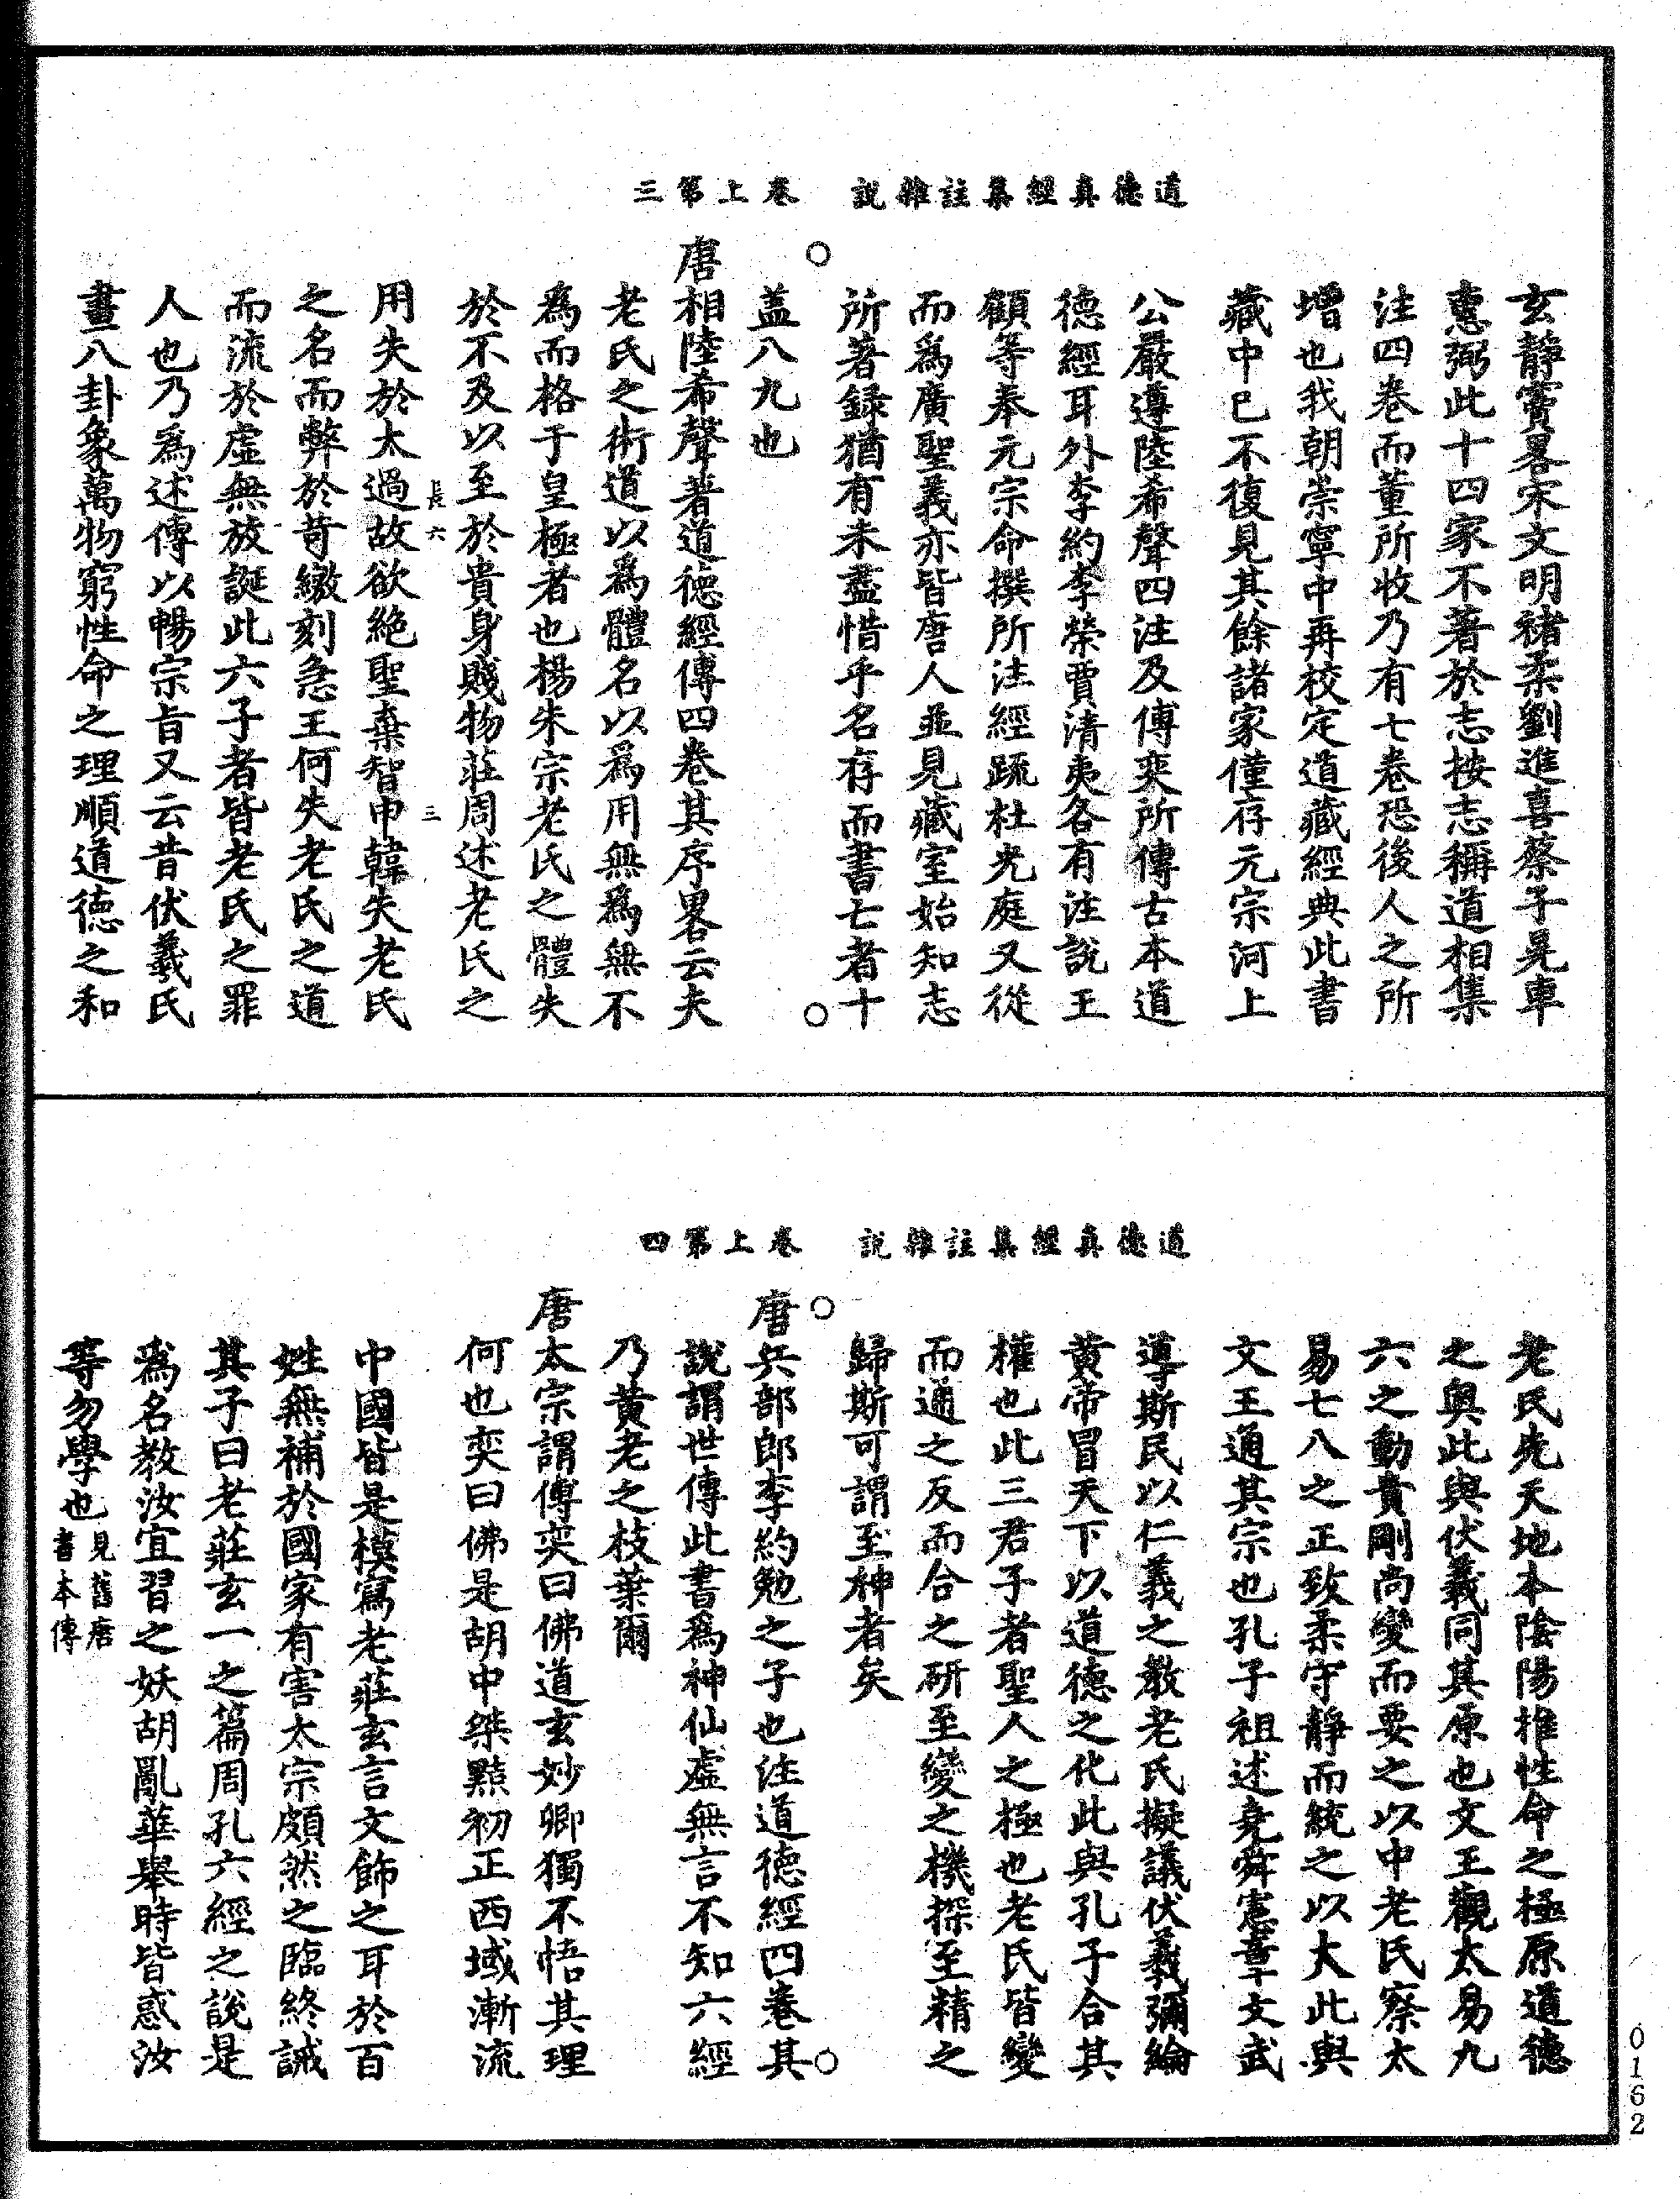 道德真經集註雜說　卷上第三
玄靜竇畧宋文明褚柔劉進喜蔡子晃車
惠弼此十四家不著於志按志稱道相集
注四卷而董所收乃有七卷恐後人之所
增也我朝崇寧中再校定道藏經典此書
藏中已不復見其餘諸家僅存元宗河上
公嚴遵陸希聲四注及傅奕所傳古本道
德經耳外李約李榮賈清夷各有注說王
顧等奉元宗命撰所注經疏杜光庭又從
而為廣聖義亦皆唐人並見藏室始知志
所著録猶有未盡惜乎名存而書七者十
盖八九也
唐相陸希聲著道德經傳四卷其序畧云夫
老氏之術道以為體名以為用無為無不
為而格于皇極者也楊朱宗老氏之體失
於不及以至於貴身賤物莊周述老氏之
長六　三
用失於太過故欲絶聖棄智申韓失老氏
之名而弊於苛繳刻急王何失老氏之道
而流於虛無放誕此六子者皆老氏之罪
人也乃為述傳以暢宗旨又云昔伏羲氏
畫八卦象萬物窮性命之理順道德之和
道德真經集註雜說　卷上第四
老氏先天地本陰陽推性命之極原道德
之奧此與伏羲同其原也文王觀太易九
六之動貴剛尚變而要之以中老氏察太
易七八之正致柔守靜而統之以大此與
文王通其宗也孔子祖述堯舜憲章文武
導斯民以仁義之教老氏擬議伏羲彌綸
黃帝冒天下以道德之化此與孔子合其
權也此三君子者聖人之極也老氏皆變
而通之反而合之研至變之機探至精之
歸斯可謂至神者矣
唐兵部郎李約勉之子也注道德經四卷其
說謂世傳此書為神仙虛無言不知六經
乃黃老之枝葉爾
唐太宗謂傅奕曰佛道玄妙卿獨不悟其理
何也奕曰佛是胡中桀黠初正西域漸流
中國皆是模寫老莊玄言文飾之耳於百
姓無補於國家有害太宗頗然之臨終誡
其子曰老莊玄一之篇周孔六經之說是
為名教汝宜習之妖胡亂華舉時皆惑汝
等勿學也見舊唐書本傳
0162